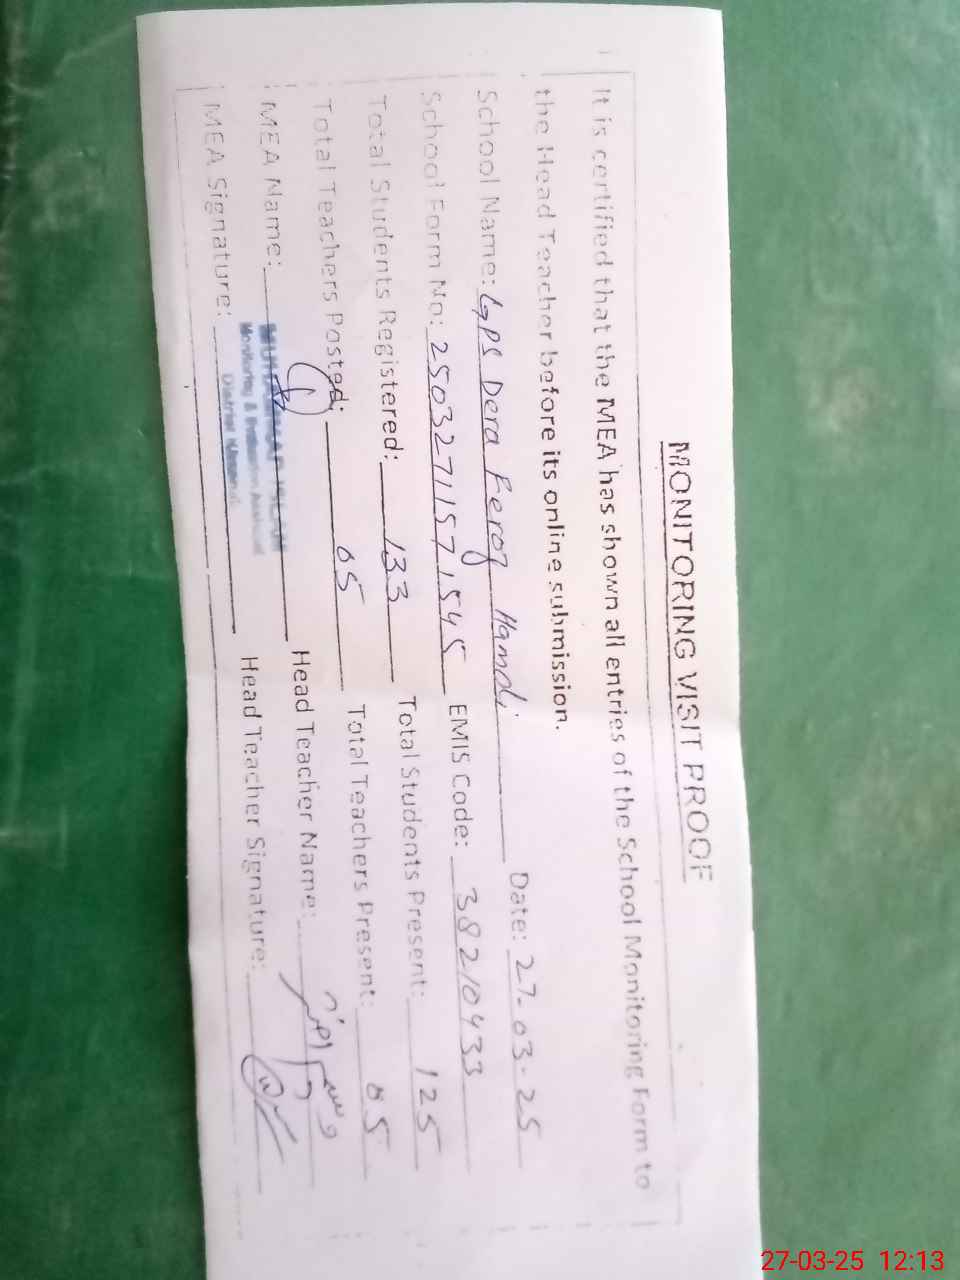 MONITORING VISIT PROOF
It is certified that the MEA has shown all entries of the School Monitoring Form to
the Head Teacher before its online submission.
School Name: GPS Dera Feroz Hamdi Date: 27-03-25
School Form No: 25032711571545 EMIS Code: 38210433
Total Students Registered: 133 Total Students Present: 125
Total Teachers Posted: 05 Total Teachers Present: 05
MEA Name: Head Teacher Name:
Monitoring & Evaluation Assistant
District
MEA Signature: Head Teacher Signature:
27-03-25 12:13